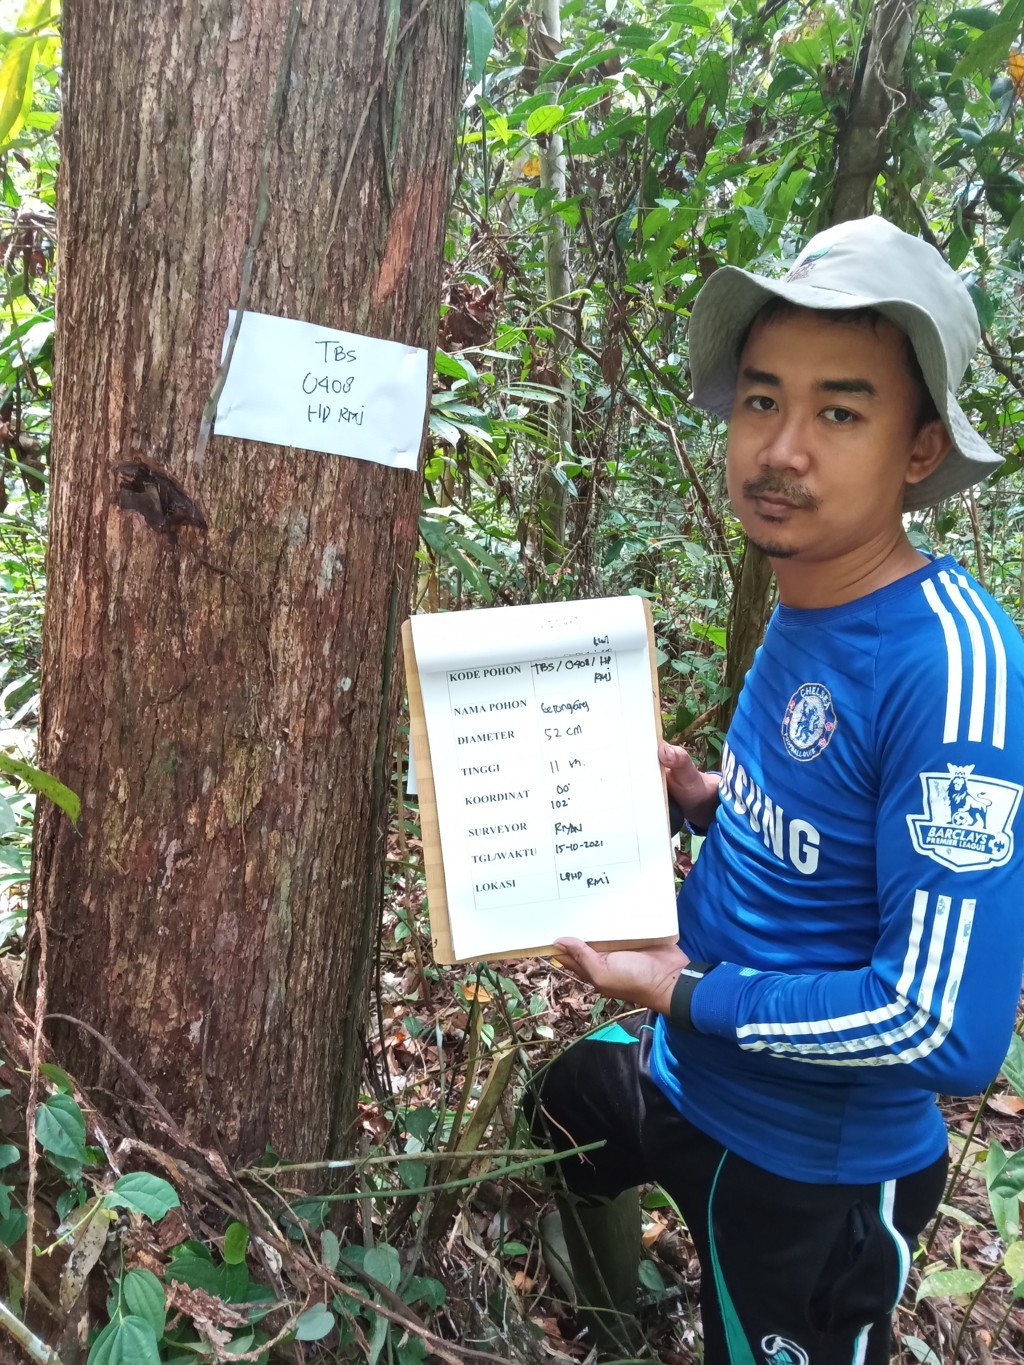 TBS
0408
HD RMJ
KODE POHON TBS / 0408 / HD
RMJ
NAMA POHON Geronggang
DIAMETER 52 cm
TINGGI 11 m.
KOORDINAT 00°
102°
SURVEYOR RIYAN
TGL/WAKTU 15-10-2021
LOKASI LPHD
RMJ
CHELSEA
FOOTBALL CLUB
SAMSUNG
BARCLAYS
PREMIER LEAGUE